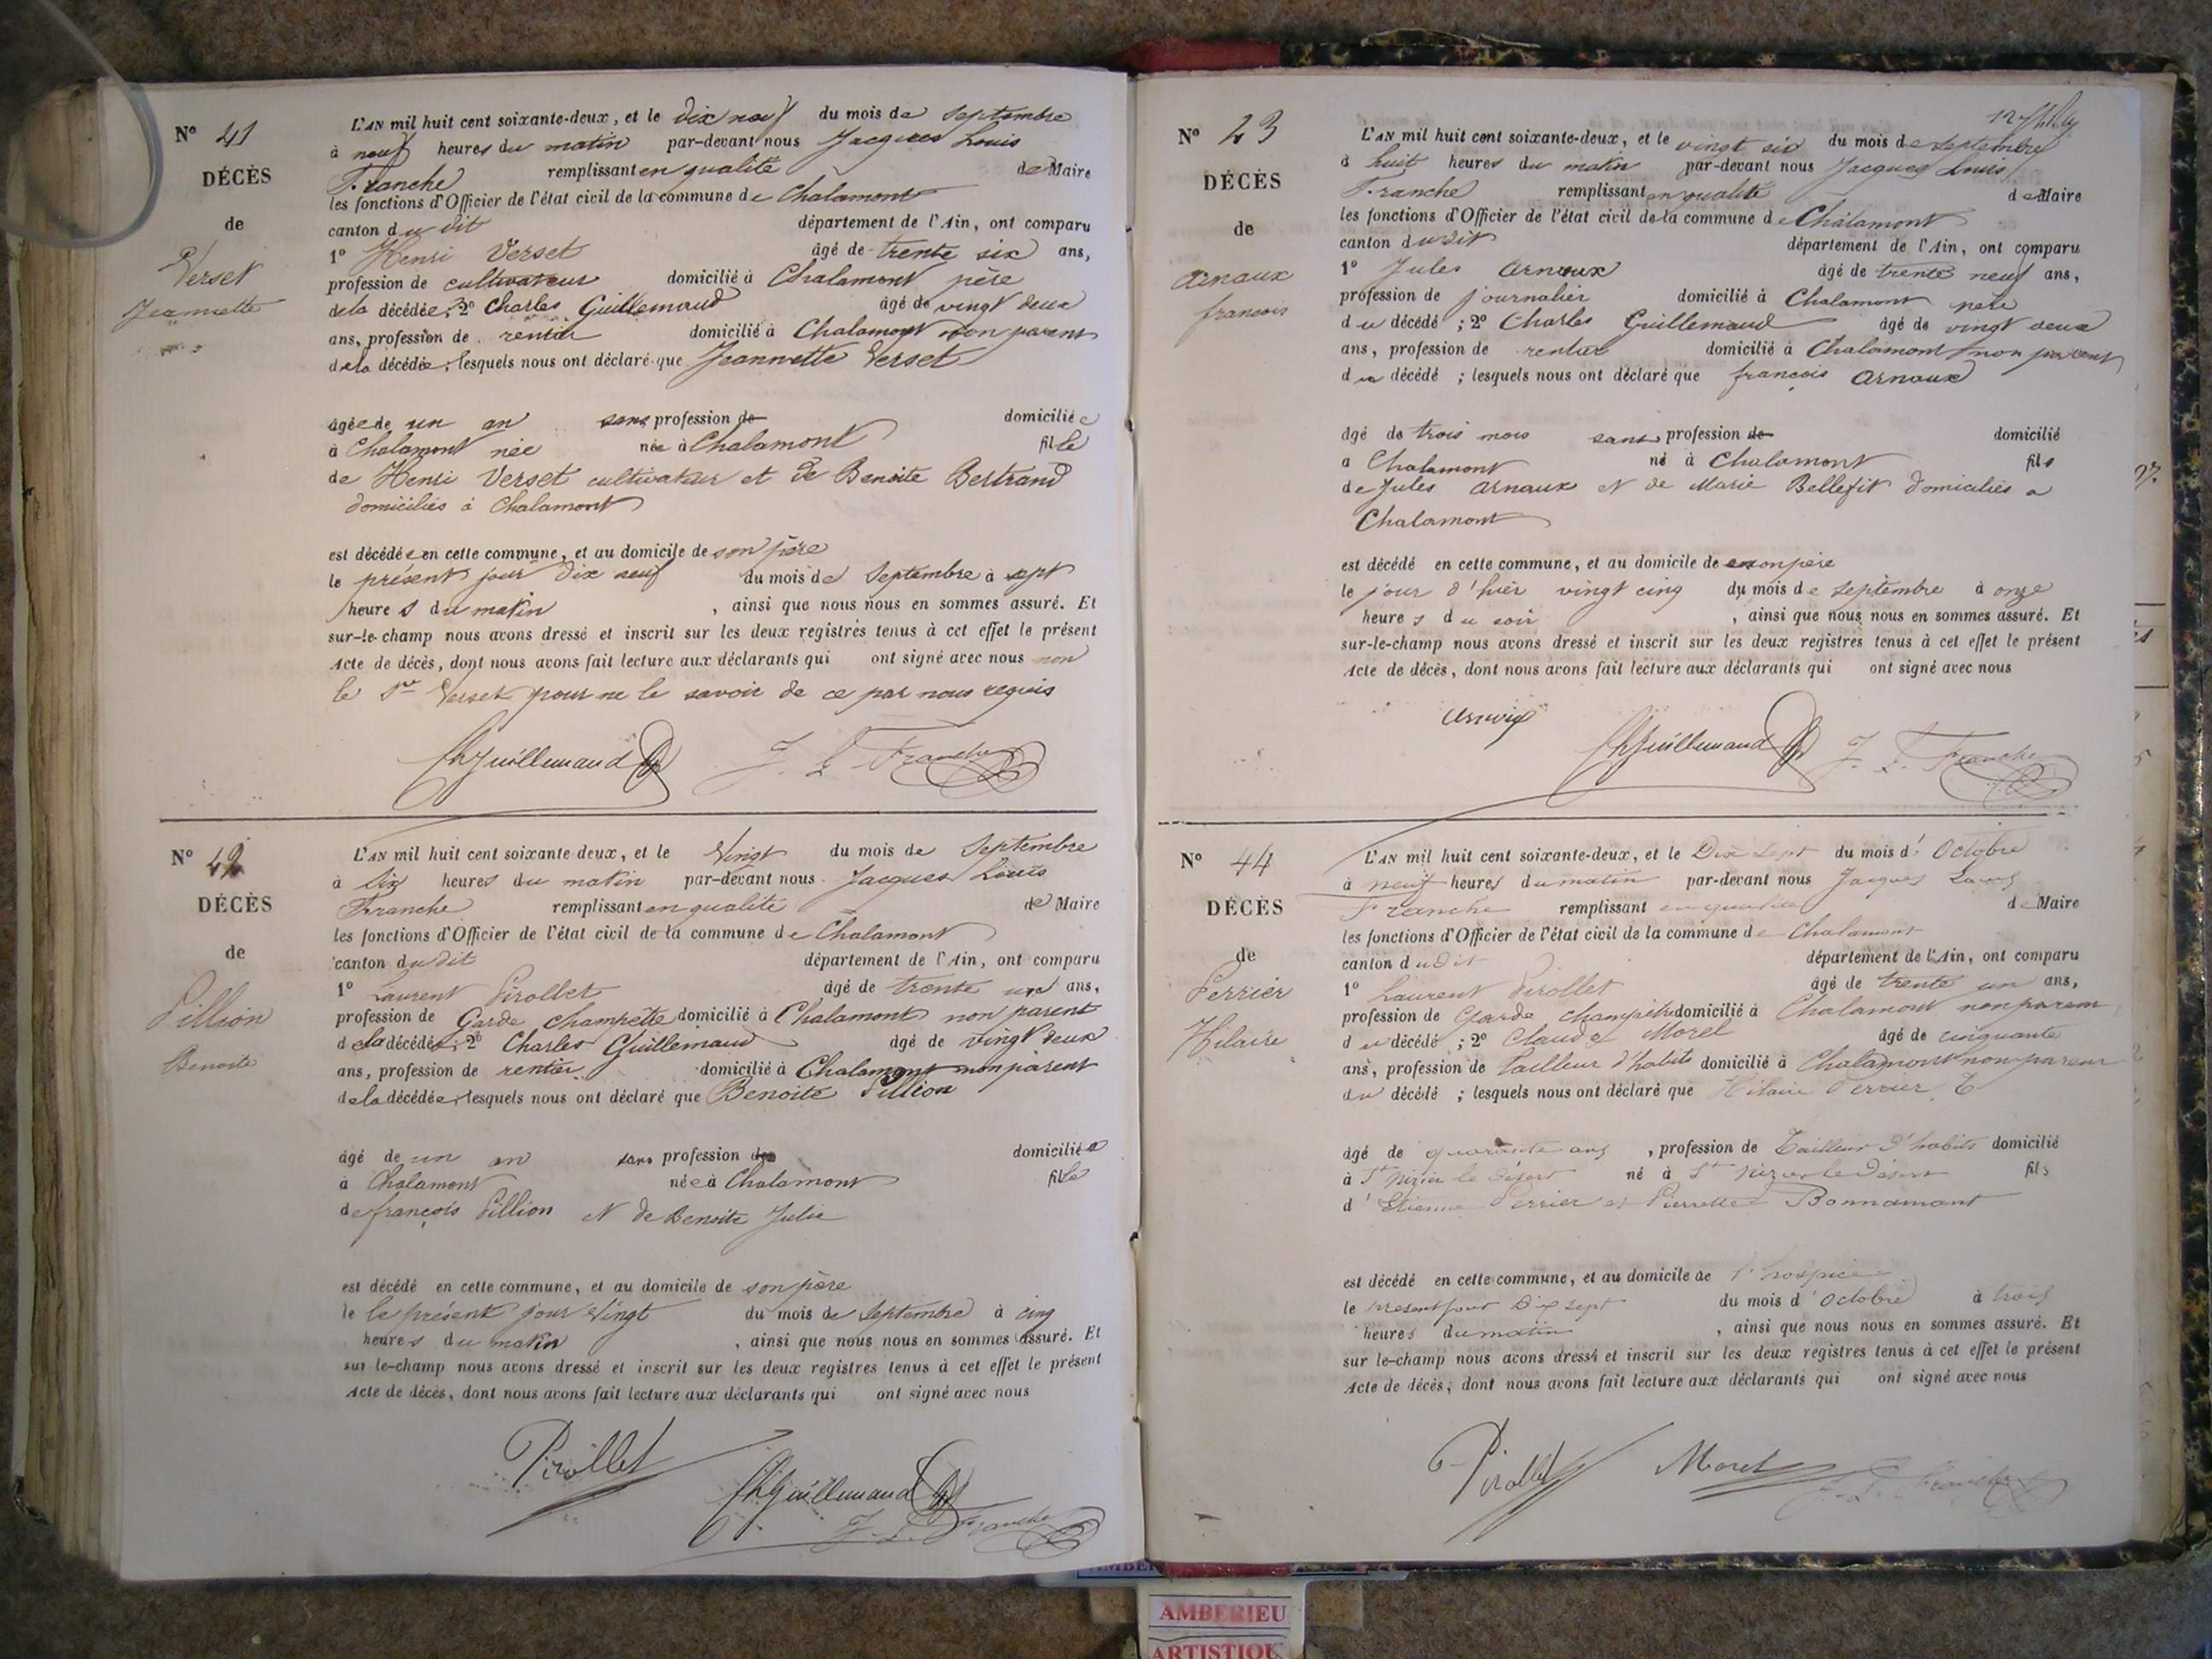 N° 41
DÉCÈS
de
Verset
Jeannette
L'AN mil huit cent soixante-deux, et le dix neuf du mois de Septembre
à neuf heures du matin par-devant nous Jacques Louis
Franche remplissant en qualité de Maire
les fonctions d'Officier de l'état civil de la commune de Chalamont
canton du dit département de l'Ain, ont comparu
1° Henri Verset âgé de trente six ans,
profession de cultivateur domicilié à Chalamont père
de la décédée; 2° Charles Guillemaud âgé de vingt deux
ans, profession de rentier domicilié à Chalamont non parent
de la décédée; lesquels nous ont déclaré que Jeannette Verset
âgée de un an sans profession de domiciliée
à Chalamont née née à Chalamont fille
de Henri Verset cultivateur et de Benoite Bertrand
domiciliés à Chalamont
est décédée en cette commune, et au domicile de son père
le présent jour dix neuf du mois de Septembre à sept
heures du matin , ainsi que nous nous en sommes assuré. Et
sur-le-champ nous avons dressé et inscrit sur les deux registres tenus à cet effet le présent
Acte de décès, dont nous avons fait lecture aux déclarants qui ont signé avec nous non
le Sr Verset pour ne le savoir de ce par nous requis
ChGuillemaud J. L. Franche
N° 42
DÉCÈS
de
Pillion
Benoite
L'AN mil huit cent soixante-deux, et le Vingt du mois de Septembre
à six heures du matin par-devant nous Jacques Louis
Franche remplissant en qualité de Maire
les fonctions d'Officier de l'état civil de la commune de Chalamont
canton du dit département de l'Ain, ont comparu
1° Laurent Pirollet âgé de trente un ans,
profession de Garde champette domicilié à Chalamont non parent
de la décédée; 2° Charles Guillemaud âgé de vingt deux
ans, profession de rentier domicilié à Chalamont non parent
de la décédée, lesquels nous ont déclaré que Benoite Pillion
âgé de un an sans profession de domiciliée
à Chalamont née à Chalamont fille
de françois Pillion et de Benoite Julie
est décédé en cette commune, et au domicile de son père
le le présent jour Vingt du mois de Septembre à cinq
heures du matin , ainsi que nous nous en sommes assuré. Et
sur le-champ nous avons dressé et inscrit sur les deux registres tenus à cet effet le présent
Acte de décès, dont nous avons fait lecture aux déclarants qui ont signé avec nous
Pirollet
ChGuillemaud
J. L. Franche
N° 43
DÉCÈS
de
Arnaux
francois
L'AN mil huit cent soixante-deux, et le vingt six du mois de Septembre
à huit heures du matin par-devant nous Jacques Louis
Franche remplissant en qualité de Maire
les fonctions d'Officier de l'état civil de la commune de Chalamont
canton dudit département de l'Ain, ont comparu
1° Jules Arnaux âgé de trente neuf ans,
profession de journalier domicilié à Chalamont père
du décédé ; 2° Charles Guillemaud âgé de vingt deux
ans, profession de rentier domicilié à Chalamont non parent
du décédé ; lesquels nous ont déclaré que françois Arnaux
âgé de trois mois sans profession de domicilié
à Chalamont né à Chalamont fils
de Jules Arnaux et de Marie Bellefit domiciliés a
Chalamont
est décédé en cette commune, et au domicile de son père
le jour d'hier vingt cinq du mois de septembre à onze
heures du soir , ainsi que nous nous en sommes assuré. Et
sur-le-champ nous avons dressé et inscrit sur les deux registres tenus à cet effet le présent
Acte de décès, dont nous avons fait lecture aux déclarants qui ont signé avec nous
ChGuillemaud J. L. Franche
N° 44
DÉCÈS
de
Perrier
Hilaire
L'AN mil huit cent soixante-deux, et le Dix Sept du mois d' Octobre
à neuf heures du matin par-devant nous Jacques Louis
Franche remplissant en qualité de Maire
les fonctions d'Officier de l'état civil de la commune de Chalamont
canton dudit département de l'Ain, ont comparu
1° Laurent Pirollet âgé de trente un ans,
profession de Garde champêtre domicilié à Chalamont non parent
du décédé ; 2° Claude Morel âgé de cinquante
ans, profession de tailleur d'habits domicilié à Chalamont non parent
du décédé ; lesquels nous ont déclaré que Hilaire Perrier
âgé de quarante ans , profession de Tailleur d'habits domicilié
à St Nizier le Désert né à St Nizier le Désert fils
d' Etienne Perrier et Pierrette Bonnamant
est décédé en cette commune, et au domicile de l'hospice
le présent jour Dix sept du mois d' Octobre à trois
heures du matin , ainsi que nous nous en sommes assuré. Et
sur le-champ nous avons dressé et inscrit sur les deux registres tenus à cet effet le présent
Acte de décès, dont nous avons fait lecture aux déclarants qui ont signé avec nous
Pirollet Morel J. L. Franche
AMBERIEU
ARTISTIQU